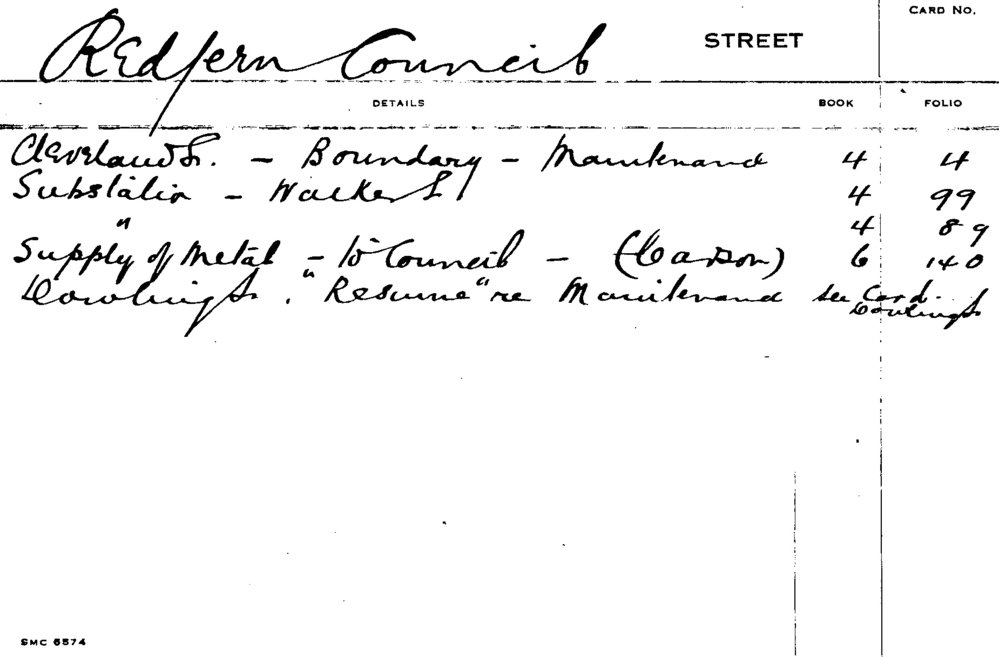 CARD NO.
Redfern Council STREET
DETAILS BOOK FOLIO
Cleveland St. - Boundary - Maintenance 4 4
Substation - Walker St 4 99
" 4 89
Supply of Metal - to Council - (Carson) 6 140
Dowling St. "Resume" re Maintenance see Card.
Dowling St
SMC 6574